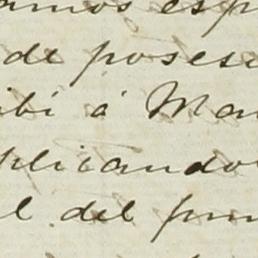 amos esp
de poses
ibi á Man
plicando
l del pun